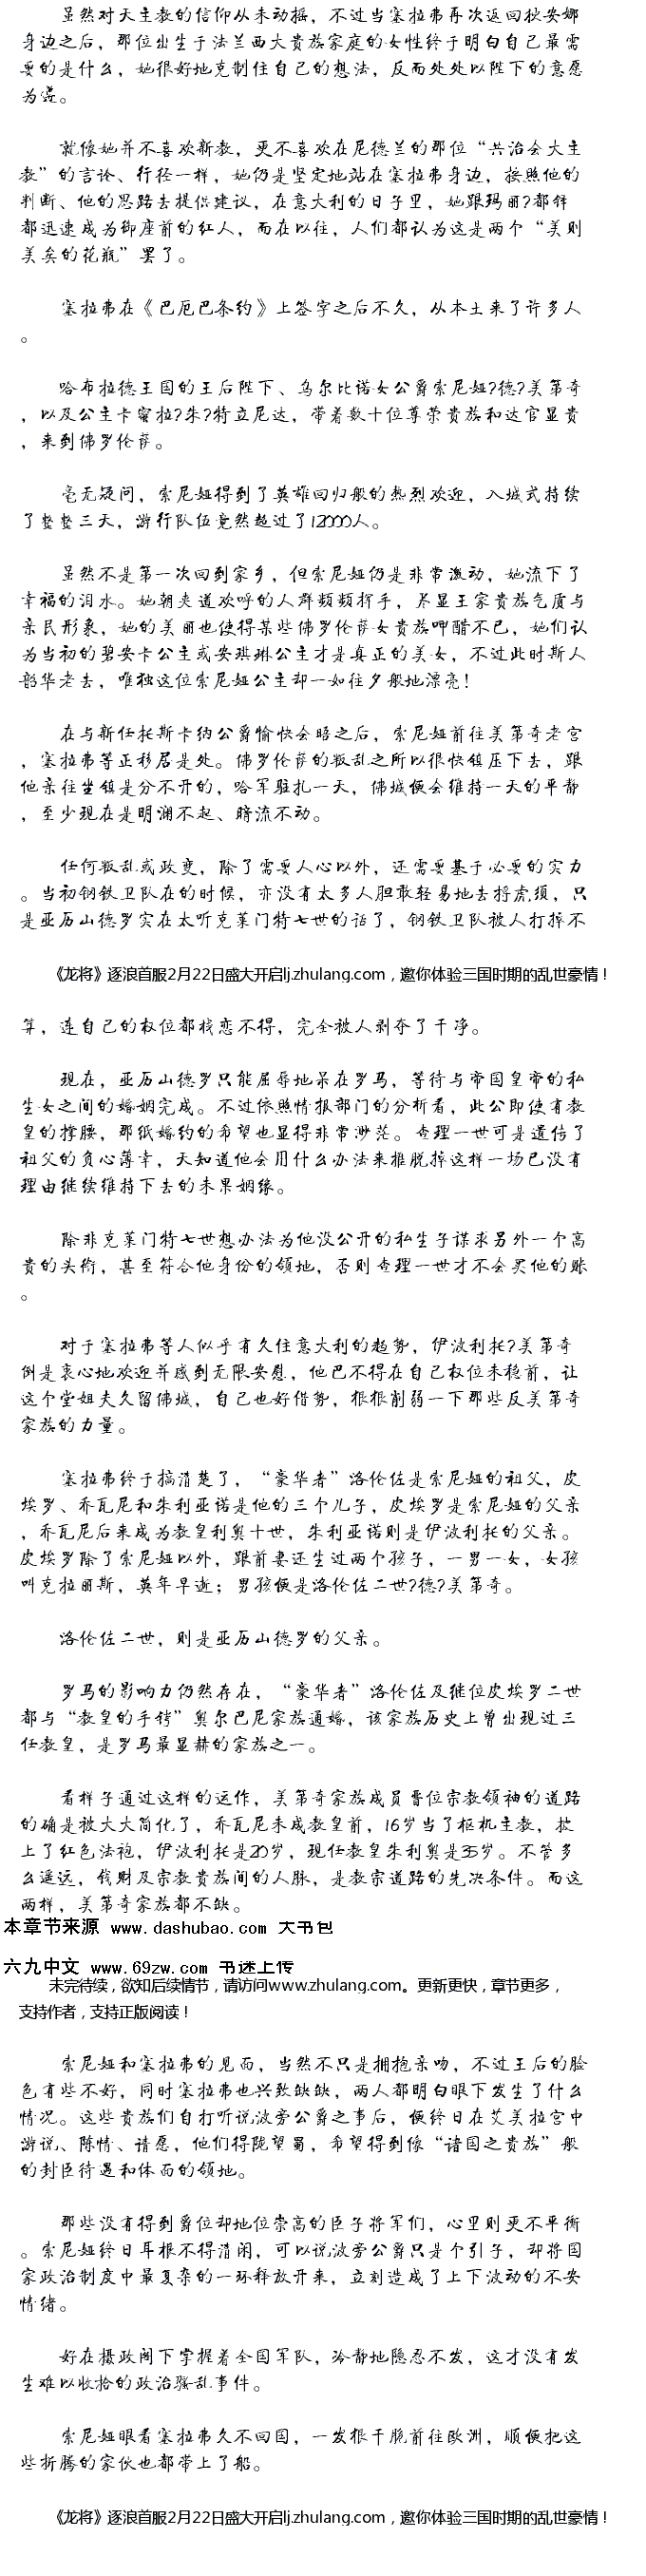 虽然对天主教的信仰从未动摇，不过当塞拉弗再次返回狄安娜
身边之后，那位出生于法兰西大贵族家庭的女性终于明白自己最需
要的是什么，她很好地克制住自己的想法，反而处处以陛下的意愿
为遵。
就像她并不喜欢新教，更不喜欢在尼德兰的那位“共治会大主
教”的言论、行径一样，她仍是坚定地站在塞拉弗身边，按照他的
判断、他的思路去提供建议，在意大利的日子里，她跟玛丽?都铎
都迅速成为御座前的红人，而在以往，人们都认为这是两个“美则
美矣的花瓶”罢了。
塞拉弗在《巴厄巴条约》上签字之后不久，从本土来了许多人
。
哈布拉德王国的王后陛下、乌尔比诺女公爵索尼娅?德?美第奇
，以及公主卡蜜拉?朱?特立尼达，带着数十位尊荣贵族和达官显贵
，来到佛罗伦萨。
毫无疑问，索尼娅得到了英雄回归般的热烈欢迎，入城式持续
了整整三天，游行队伍竟然超过了12000人。
虽然不是第一次回到家乡，但索尼娅仍是非常激动，她流下了
幸福的泪水。她朝夹道欢呼的人群频频挥手，尽显王家贵族气质与
亲民形象，她的美丽也使得某些佛罗伦萨女贵族呷醋不已，她们认
为当初的碧安卡公主或安琪琳公主才是真正的美女，不过此时斯人
韶华老去，唯独这位索尼娅公主却一如往夕般地漂亮！
在与新任托斯卡纳公爵愉快会晤之后，索尼娅前往美第奇老宫
，塞拉弗等正移居是处。佛罗伦萨的叛乱之所以很快镇压下去，跟
他亲往坐镇是分不开的，哈军驻扎一天，佛城便会维持一天的平静
，至少现在是明澜不起、暗流不动。
任何叛乱或政变，除了需要人心以外，还需要基于必要的实力
。当初钢铁卫队在的时候，亦没有太多人胆敢轻易地去捋虎须，只
是亚历山德罗实在太听克莱门特七世的话了，钢铁卫队被人打掉不
《龙将》逐浪首服2月22日盛大开启lj.zhulang.com，邀你体验三国时期的乱世豪情！
算，连自己的权位都栈恋不得，完全被人剥夺了干净。
现在，亚历山德罗只能屈辱地呆在罗马，等待与帝国皇帝的私
生女之间的婚姻完成。不过依照情报部门的分析看，此公即使有教
皇的撑腰，那纸婚约的希望也显得非常渺茫。查理一世可是遗传了
祖父的负心薄幸，天知道他会用什么办法来推脱掉这样一场已没有
理由继续维持下去的未果姻缘。
除非克莱门特七世想办法为他没公开的私生子谋求另外一个高
贵的头衔，甚至符合他身份的领地，否则查理一世才不会买他的账
。
对于塞拉弗等人似乎有久住意大利的趋势，伊波利托?美第奇
倒是衷心地欢迎并感到无限安慰，他巴不得在自己权位未稳前，让
这个堂姐夫久留佛城，自己也好借势，狠狠削弱一下那些反美第奇
家族的力量。
塞拉弗终于搞清楚了，“豪华者”洛伦佐是索尼娅的祖父，皮
埃罗、乔瓦尼和朱利亚诺是他的三个儿子，皮埃罗是索尼娅的父亲
，乔瓦尼后来成为教皇利奥十世，朱利亚诺则是伊波利托的父亲。
皮埃罗除了索尼娅以外，跟前妻还生过两个孩子，一男一女，女孩
叫克拉丽斯，英年早逝；男孩便是洛伦佐二世?德?美第奇。
洛伦佐二世，则是亚历山德罗的父亲。
罗马的影响力仍然存在，“豪华者”洛伦佐及继位皮埃罗二世
都与“教皇的手铐”奥尔巴尼家族通婚，该家族历史上曾出现过三
任教皇，是罗马最显赫的家族之一。
看样子通过这样的运作，美第奇家族成员晋位宗教领神的道路
的确是被大大简化了，乔瓦尼未成教皇前，16岁当了枢机主教，披
上了红色法袍，伊波利托是20岁，现任教皇朱利奥是35岁。不管多
么遥远，钱财及宗教贵族间的人脉，是教宗道路的先决条件。而这
两样，美第奇家族都不缺。
本章节来源 www.dashubao.com 大书包
六九中文 www.69zw.com 书迷上传
未完待续，欲知后续情节，请访问www.zhulang.com。更新更快，章节更多，
支持作者，支持正版阅读！
索尼娅和塞拉弗的见面，当然不只是拥抱亲吻，不过王后的脸
色有些不好，同时塞拉弗也兴致缺缺，两人都明白眼下发生了什么
情况。这些贵族们自打听说波旁公爵之事后，便终日在艾美拉宫中
游说、陈情、请愿，他们得陇望蜀，希望得到像“诸国之贵族”般
的封臣待遇和体面的领地。
那些没有得到爵位却地位崇高的臣子将军们，心里则更不平衡
。索尼娅终日耳根不得清闲，可以说波旁公爵只是个引子，却将国
家政治制度中最复杂的一环释放开来，立刻造成了上下波动的不安
情绪。
好在摄政阁下掌握着全国军队，冷静地隐忍不发，这才没有发
生难以收拾的政治骚乱事件。
索尼娅眼看塞拉弗久不回国，一发狠干脆前往欧洲，顺便把这
些折腾的家伙也都带上了船。
《龙将》逐浪首服2月22日盛大开启lj.zhulang.com，邀你体验三国时期的乱世豪情！